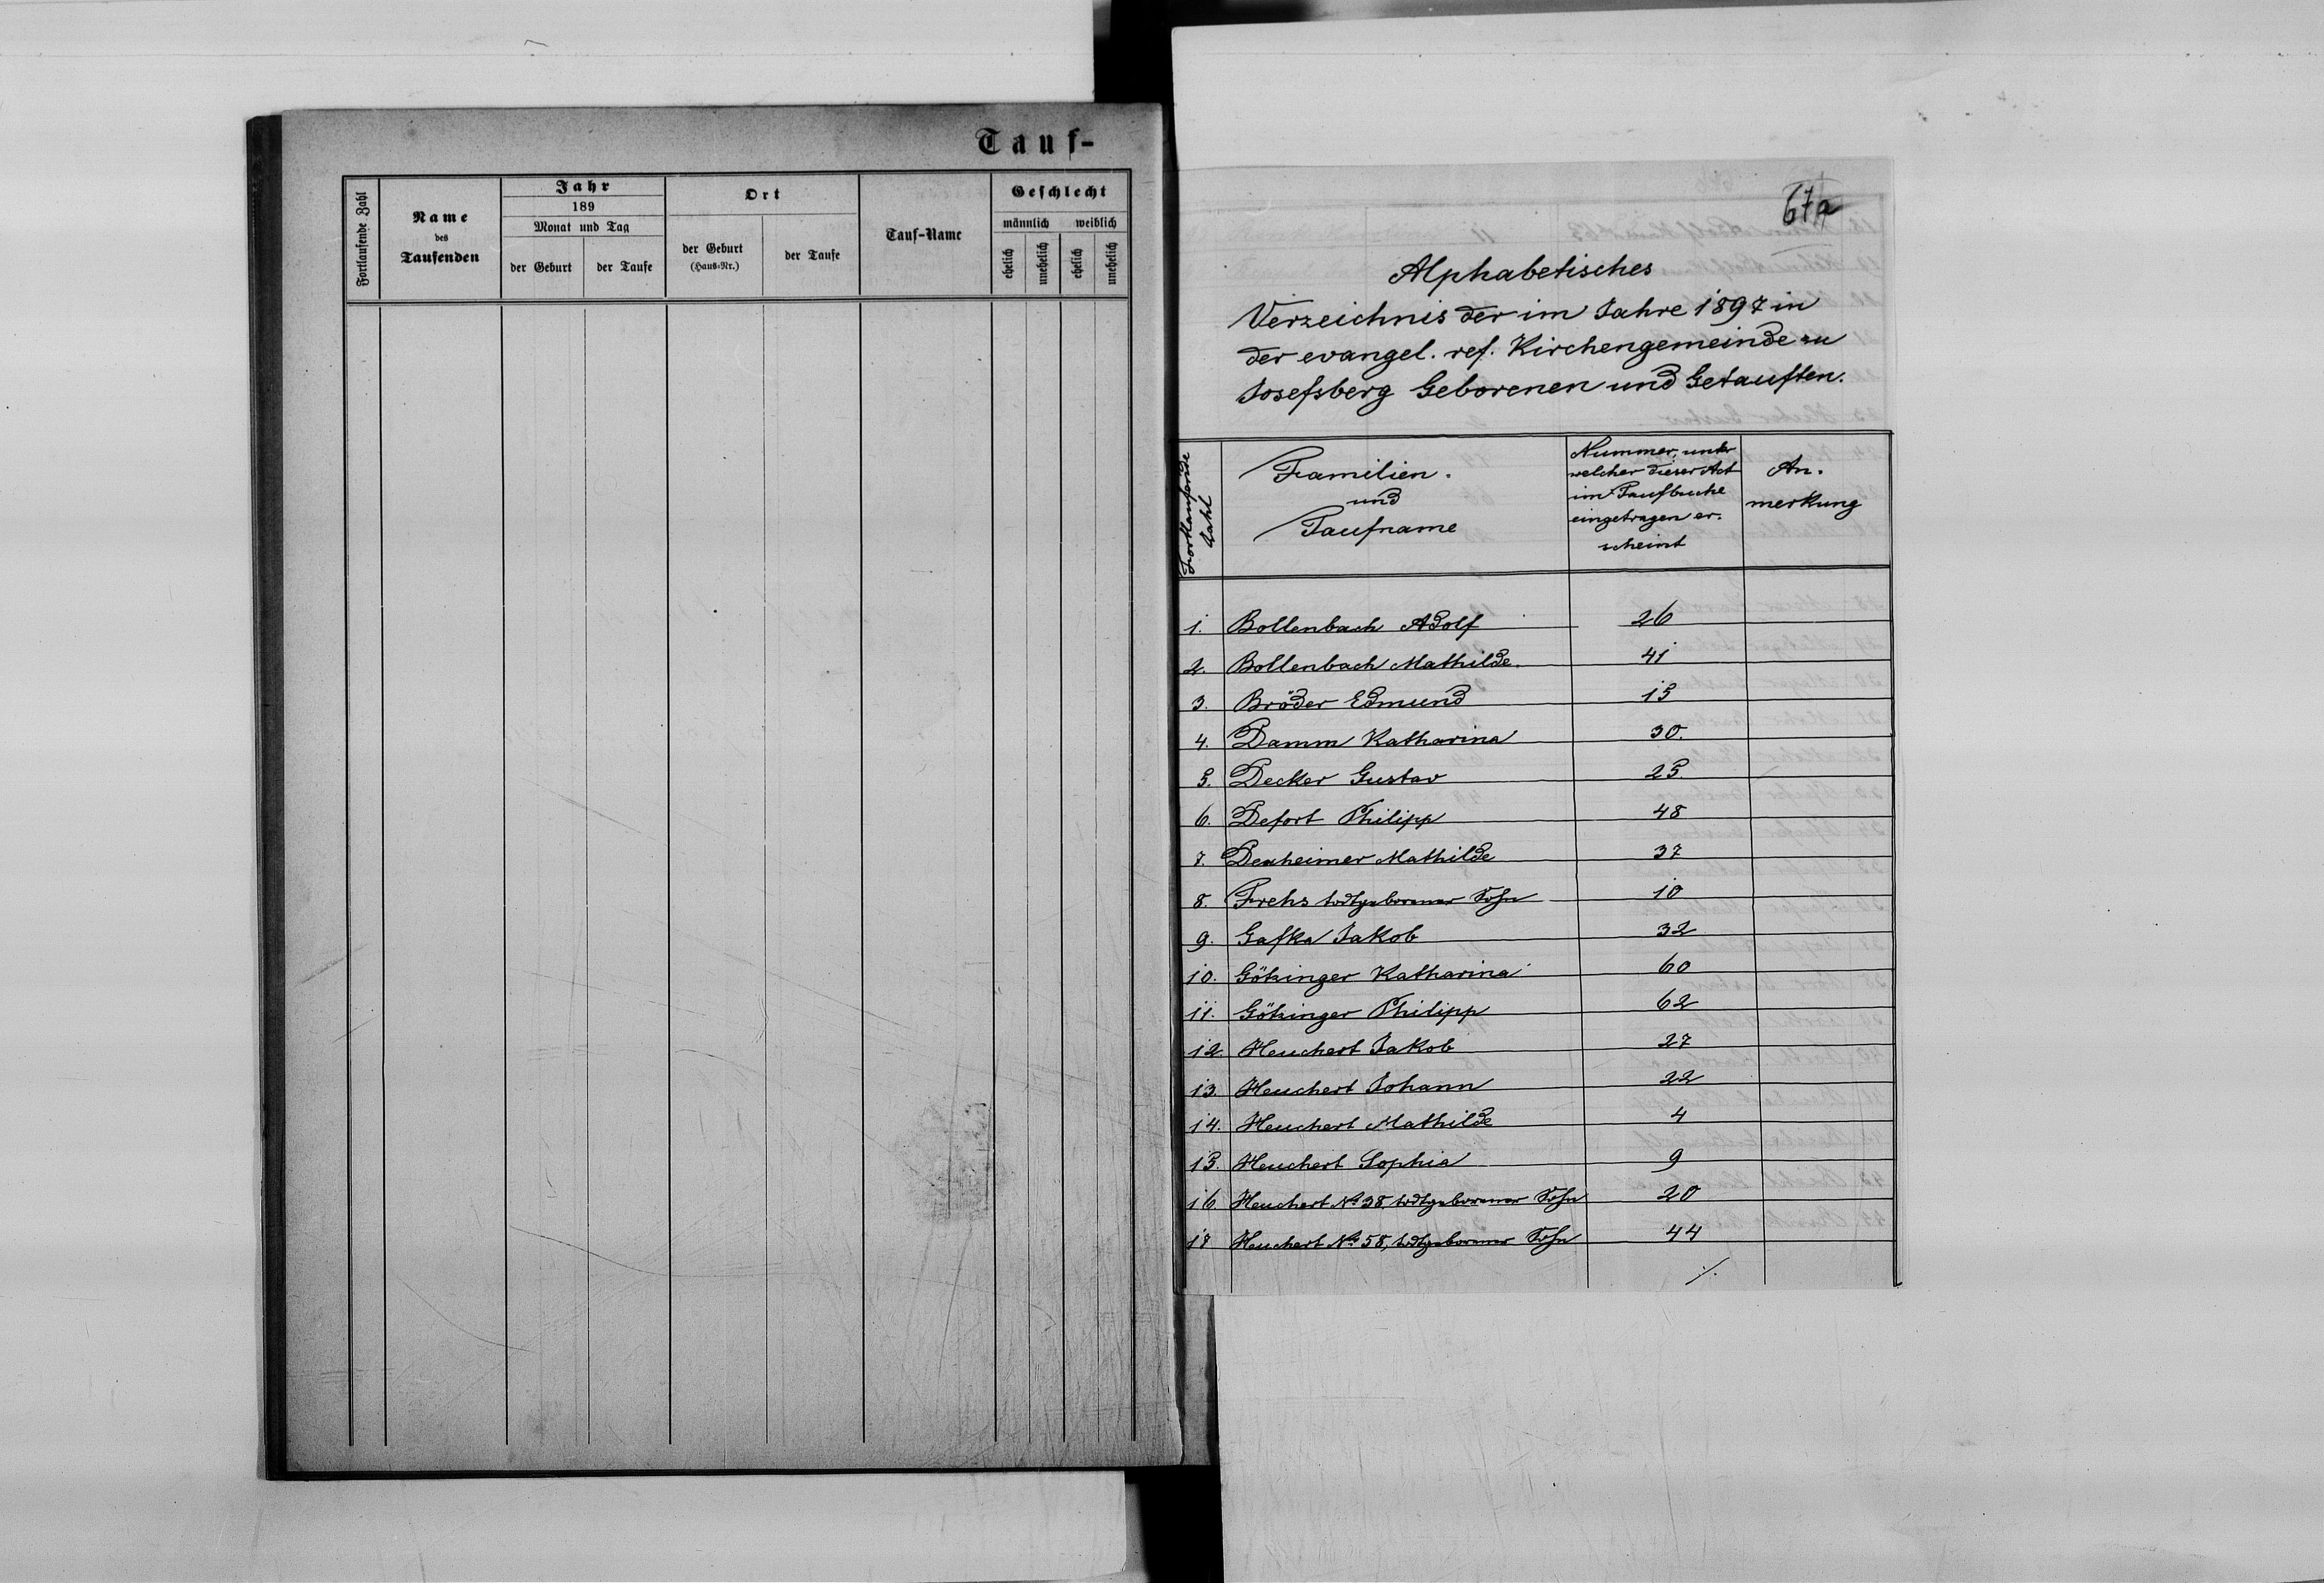 Tauf-
Fortlaufende Zahl
Name
des
Taufenden
Jahr
189
Monat und Tag
der Geburt
der Taufe
Ort
der Geburt
(Haus-Nr.)
der Taufe
Tauf-Name
Geschlecht
männlich weiblich
ehelich
unehelich
ehelich
unehelich
67a
Alphabetisches
Verzeichnis der im Jahre 1897 in
der evangel. ref. Kirchengemeinde zu
Josefsberg Geborenen und Getauften.
Fortlaufende
Zahl
Familien.
und
Taufname
Nummer, unter
welcher dieser Act
im Taufbuche
eingetragen er-
scheint
An-
merkung
1. Bollenbach Adolf 26
2. Bollenbach Mathilde. 41
3. Bröder Edmund 15
4. Damm Katharina 30.
5. Decker Gustav 25.
6. Defort Philipp 48
7. Dexheimer Mathilde 37
8. Frehs todtgeborener Sohn 10
9. Gafka Jakob 32
10. Götzinger Katharina 60
11. Götzinger Philipp 62
12. Heuchert Jakob 27
13. Heuchert Johann 22
14. Heuchert Mathilde 4
15. Heuchert Sophia 9
16. Heuchert No 38, todtgeborener Sohn 20
17 Heuchert No 58, todtgeborener Sohn 44
./.